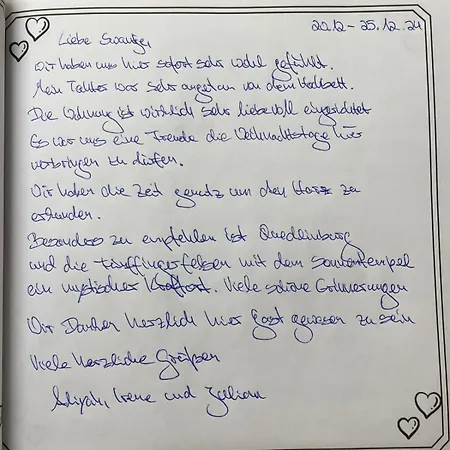 20.12 - 25.12.24
Liebe
wir haben uns hier sofort sehr wohl gefühlt.
Mein Tochter war sehr angetan von dem Hochbett.
Die Wohnung ist wirklich sehr liebevoll eingerichtet
Es war uns eine Freude die Weihnachtstage hier
verbringen zu dürfen.
Wir haben die Zeit genutz um den Harz zu
erkunden.
Besonders zu empfehlen ist Quedlinburg
und die fünffingerfelsen mit dem Sonnentempel
ein mystischer Kraftort. Viele schöne Erinnerungen
Wir Danken herzlich hier Gast gewesen zu sein
Viele herzliche Grüßen
Irene und Julian